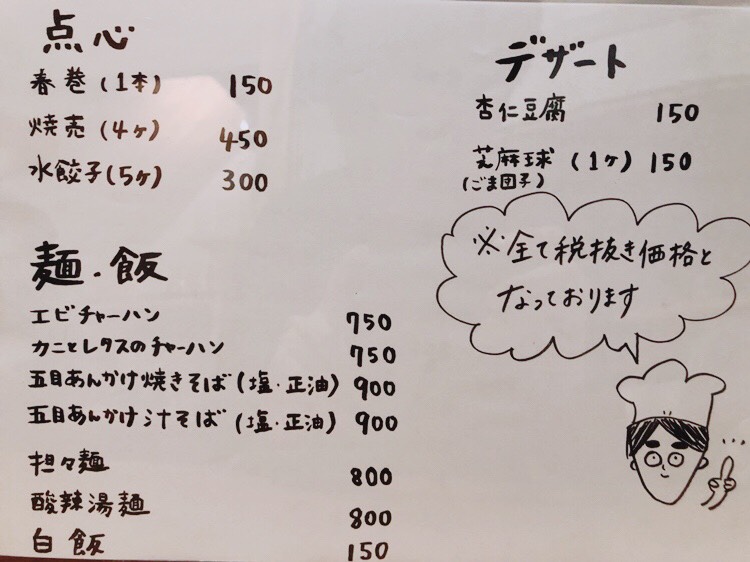 点心
春巻(1本) 150
焼売(4ヶ) 450
水餃子(5ヶ) 300
麺・飯
エビチャーハン 750
カニとレタスのチャーハン 750
五目あんかけ焼きそば(塩・正油) 900
五目あんかけ汁そば(塩・正油) 900
担々麺 800
酸辣湯麺 800
白飯 150
デザート
杏仁豆腐 150
芝麻球(1ヶ) 150
(ごま団子)
※全て税抜き価格と
なっております